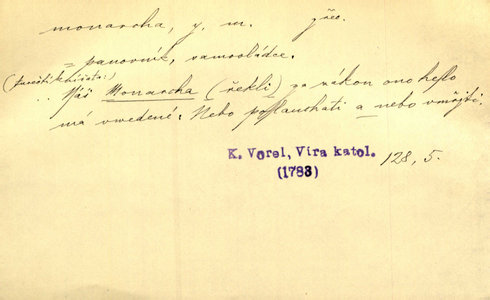 monarcha, y, m. řec.
= panovník, samovládce.
(povstlí knížata:)
.. Náš Monarcha (řekli) za zákon ono heslo
má uwedené: Nebo poslauchati a nebo umříti.
K. Vorel, Víra katol. 128, 5.
(1783)